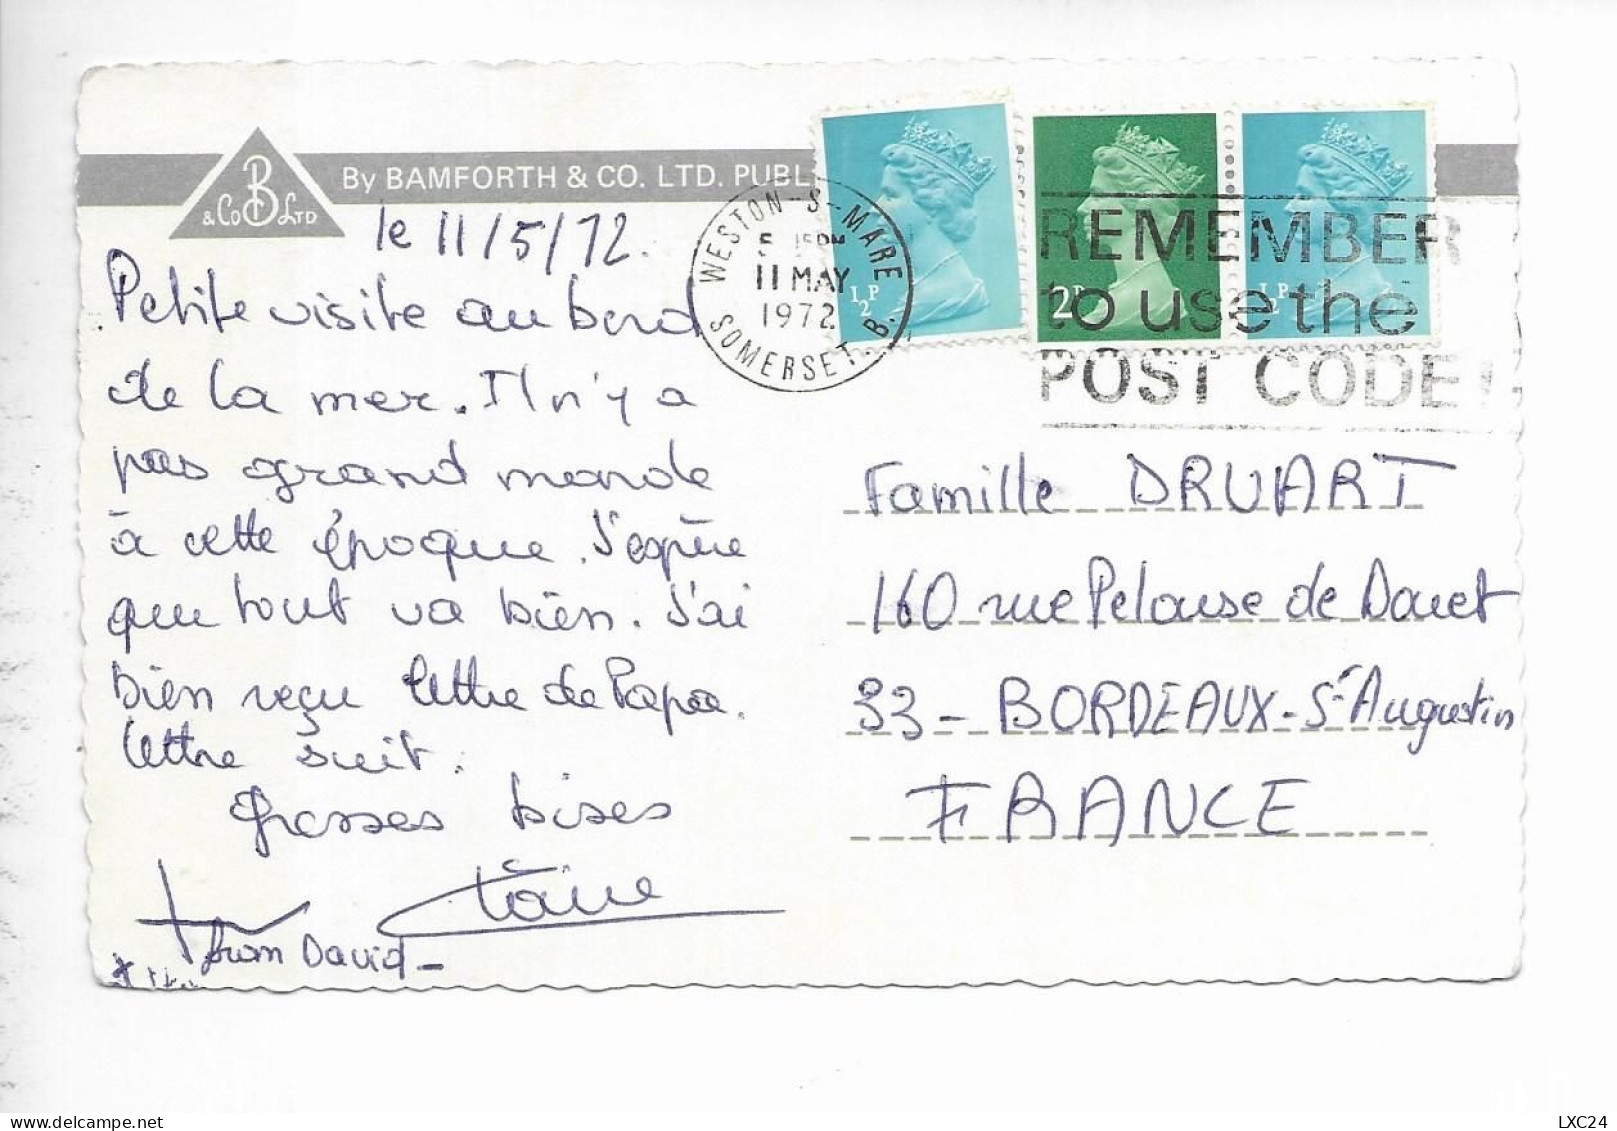 By BAMFORTH & CO. LTD. PUBL
B
& Co LTD
le 11/5/72.
Petite visite au bord
de la mer. Il n'y a
pas grand monde
à cette époque. J'espère
que tout va bien. J'ai
bien reçu lettre de Papa.
lettre suit.
Grosses bises
from David
WESTON-S-MARE
11 MAY
1972
SOMERSET. B.
½P
2P
½P
REMEMBER
to use the
POST CODE
Famille DRUART
160 rue Pelouse de Douet
33 - BORDEAUX - St Augustin
FRANCE
LXC24